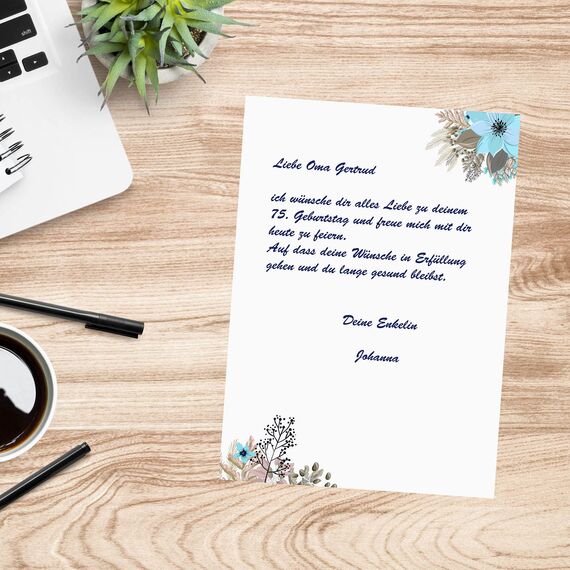 Liebe Oma Gertrud
ich wünsche dir alles Liebe zu deinem
75. Geburtstag und freue mich mit dir
heute zu feiern.
Auf dass deine Wünsche in Erfüllung
gehen und du lange gesund bleibst.
Deine Enkelin
Johanna